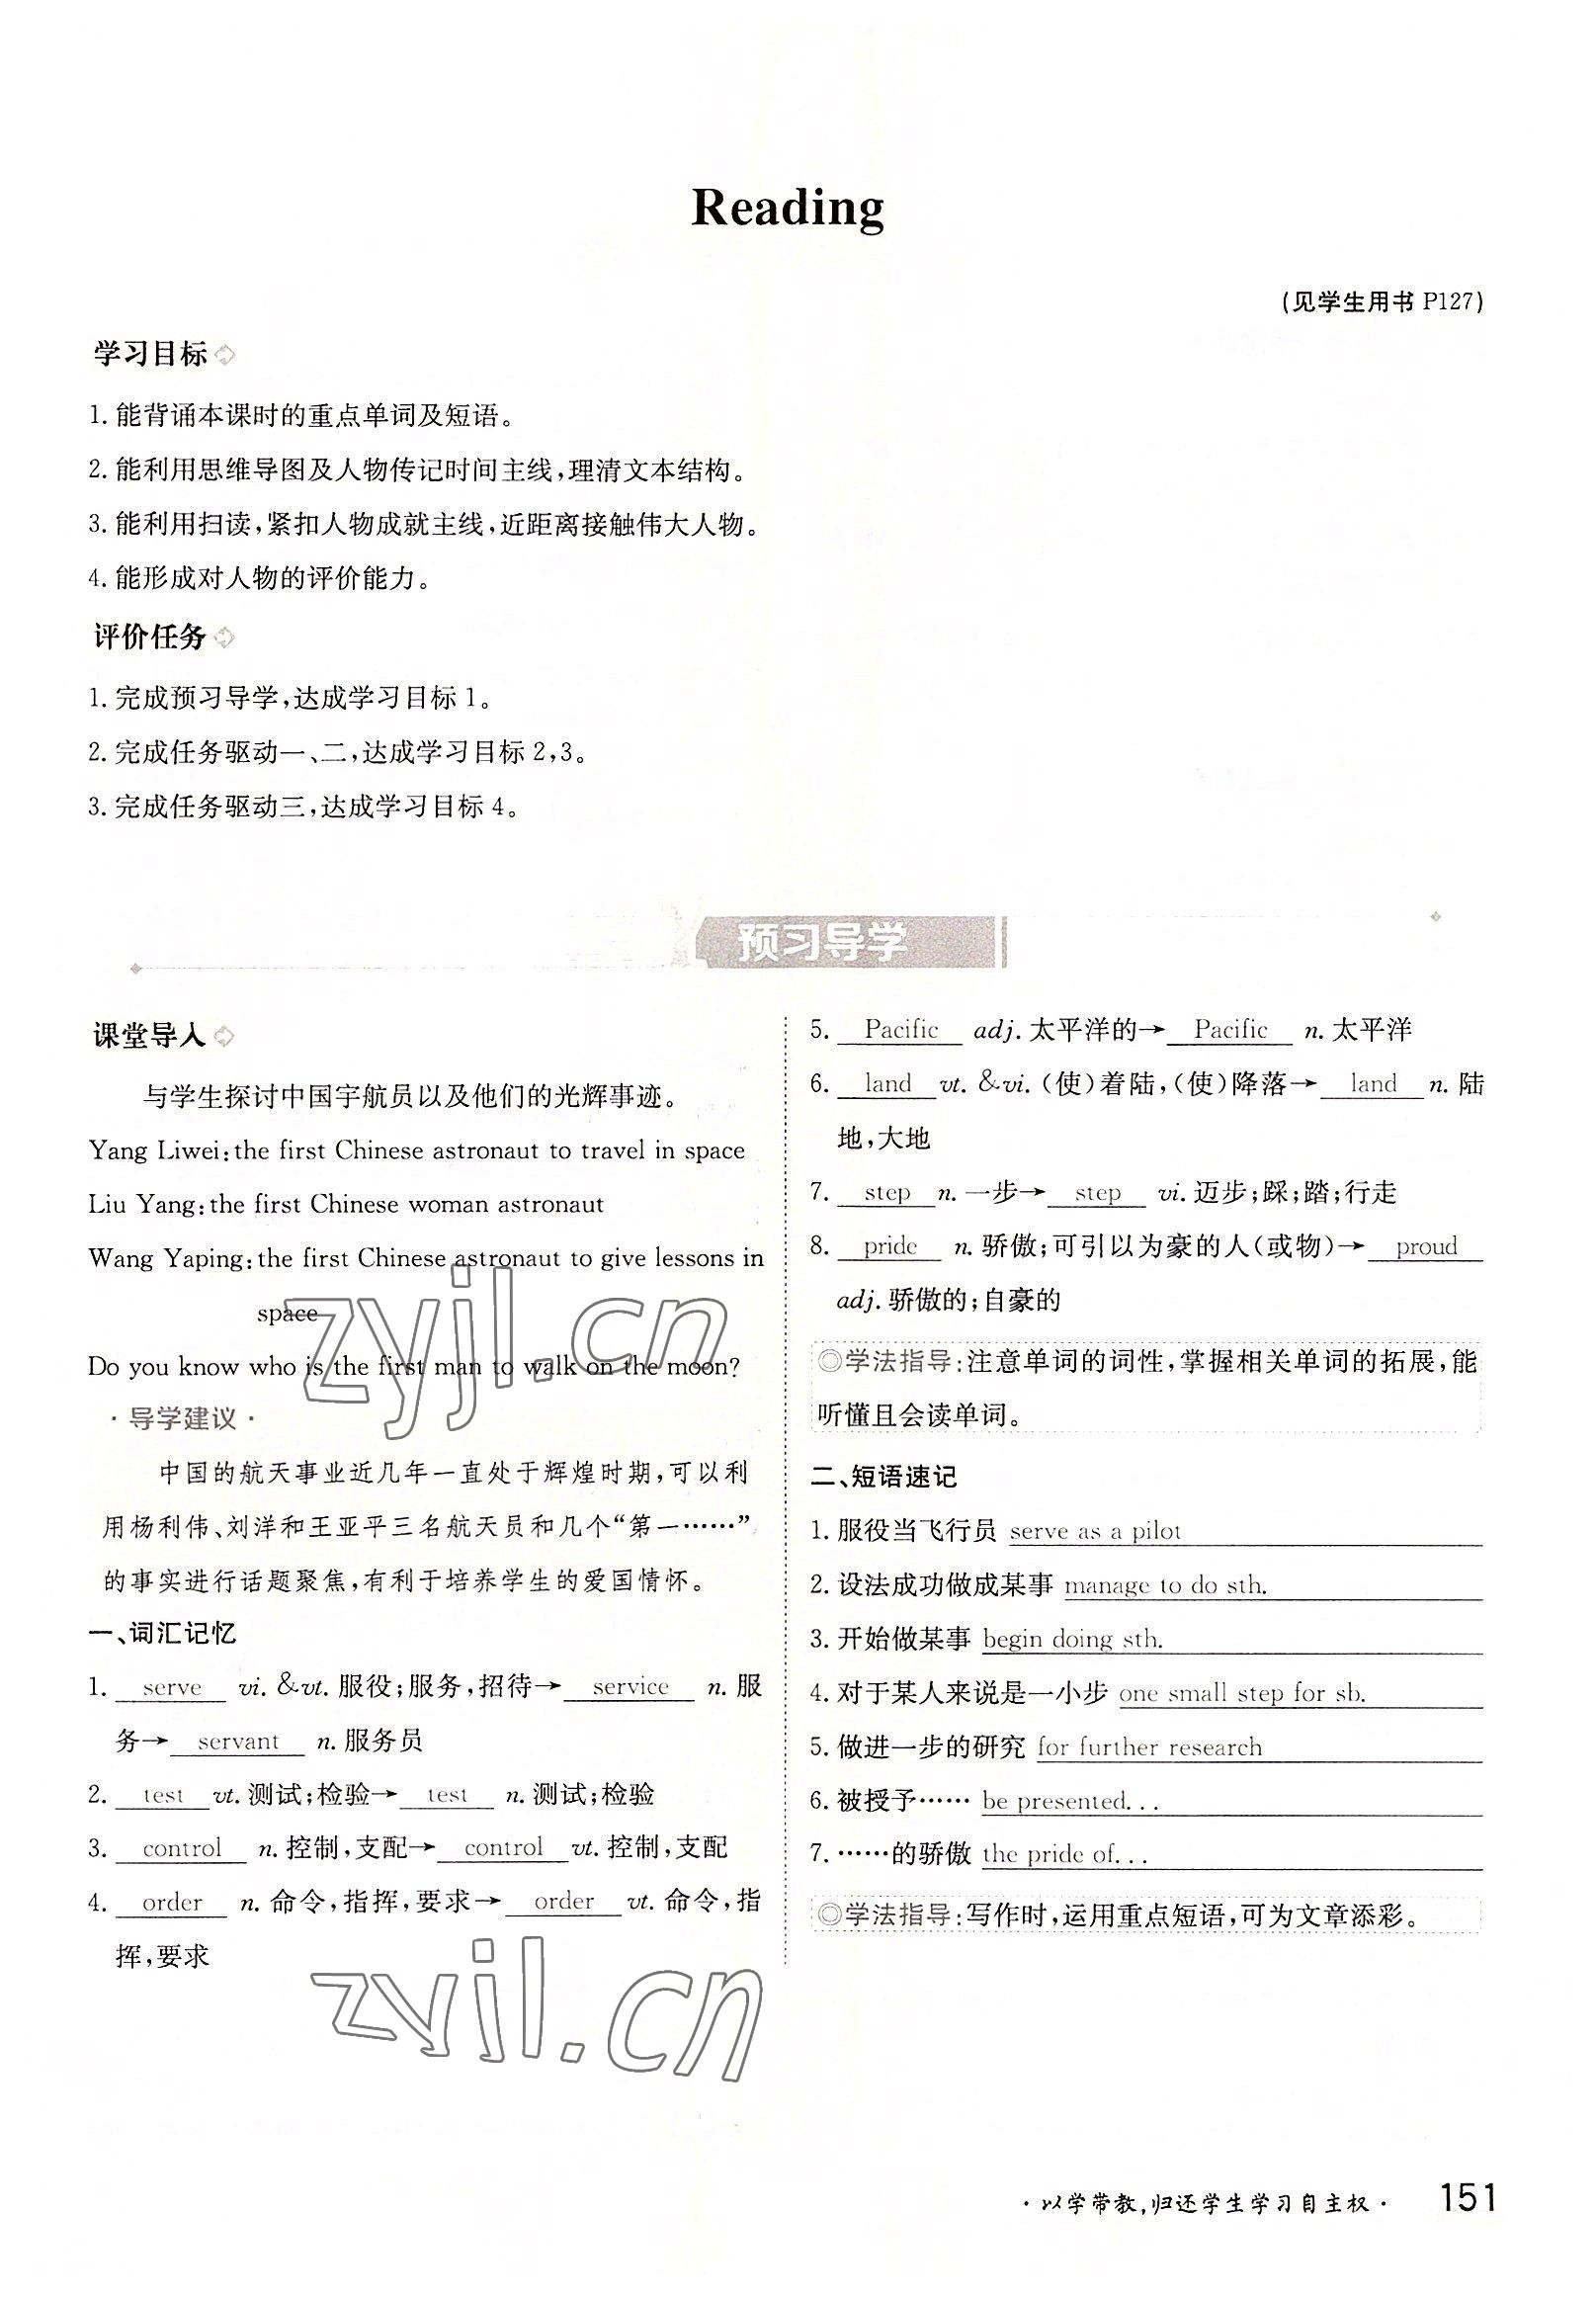 Reading
(见学生用书 P127)
学习目标
1. 能背诵本课时的重点单词及短语。
2. 能利用思维导图及人物传记时间主线,理清文本结构。
3. 能利用扫读,紧扣人物成就主线,近距离接触伟大人物。
4. 能形成对人物的评价能力。
评价任务
1. 完成预习导学,达成学习目标 1。
2. 完成任务驱动一、二,达成学习目标 2,3。
3. 完成任务驱动三,达成学习目标 4。
预习导学
课堂导入
与学生探讨中国宇航员以及他们的光辉事迹。
Yang Liwei: the first Chinese astronaut to travel in space
Liu Yang: the first Chinese woman astronaut
Wang Yaping: the first Chinese astronaut to give lessons in
space
Do you know who is the first man to walk on the moon?
·导学建议·
中国的航天事业近几年一直处于辉煌时期,可以利
用杨利伟、刘洋和王亚平三名航天员和几个“第一……”
的事实进行话题聚焦,有利于培养学生的爱国情怀。
一、词汇记忆
1. serve vi. &vt. 服役;服务,招待→ service n. 服
务→ servant n. 服务员
2. test vt. 测试;检验→ test n. 测试;检验
3. control n. 控制,支配→ control vt. 控制,支配
4. order n. 命令,指挥,要求→ order vt. 命令,指
挥,要求
5. Pacific adj. 太平洋的→ Pacific n. 太平洋
6. land vt. &vi. (使)着陆,(使)降落→ land n. 陆
地,大地
7. step n. 一步→ step vi. 迈步;踩;踏;行走
8. pride n. 骄傲;可引以为豪的人(或物)→ proud
adj. 骄傲的;自豪的
◎学法指导:注意单词的词性,掌握相关单词的拓展,能
听懂且会读单词。
二、短语速记
1. 服役当飞行员 serve as a pilot
2. 设法成功做成某事 manage to do sth.
3. 开始做某事 begin doing sth.
4. 对于某人来说是一小步 one small step for sb.
5. 做进一步的研究 for further research
6. 被授予…… be presented...
7. ……的骄傲 the pride of...
◎学法指导:写作时,运用重点短语,可为文章添彩。
zyjl.cn
zyjl.cn
·以学带教,归还学生学习自主权· 151